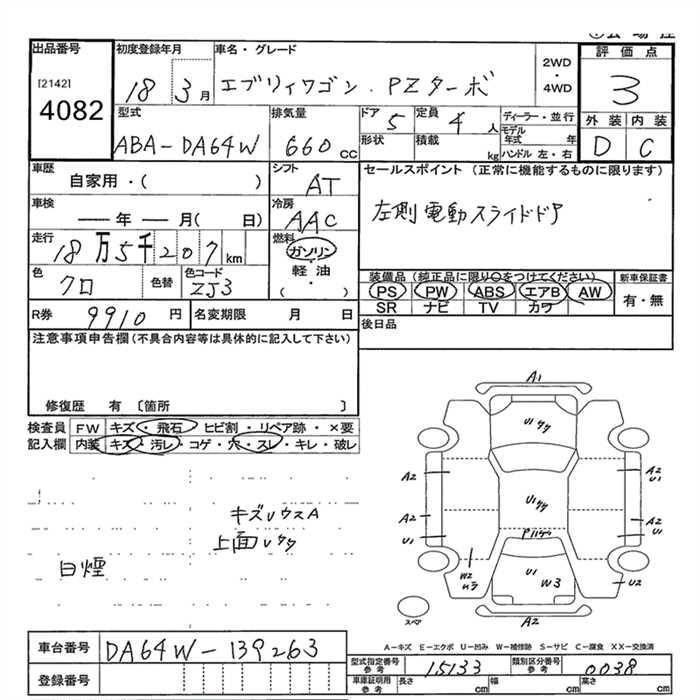 出品番号 初度登録年月 車名・グレード 評価点
[2142] 4082 18 3月 エブリィワゴン.PZターボ 2WD・4WD 3
型式 排気量 ドア 定員 ディーラー・並行 外装 内装
ABA-DA64W 660cc 5 4人 モデル年式 年 D C
形状 積載 kg ハンドル 左・右
車歴 シフト セールスポイント (正常に機能するものに限ります)
自家用・( ) AT
車検 冷房 左側電動スライドドア
ー年ー月( 日) AAC
走行 燃料
18万5千207km ガソリン・軽油・( )
色 色替 色コード 装備品(純正品に限り○をつけてください) 新車保証書
クロ ZJ3 PS PW ABS エアB AW 有・無
SR ナビ TV カワ
R券 9910円 名変期限 月 日 後日品
注意事項申告欄(不具合内容等は具体的に記入して下さい)
修復歴 有 〔箇所 〕
検査員 FW キズ・飛石・ヒビ割・リペア跡・×要
記入欄 内装 キズ・汚レ・コゲ・穴・スレ・キレ・破レ
A1
U1
A2 A2
U1
A2 A2
U1 U1
W2 U1 W3 U2
A2
スペア
白煙
A-キズ E-エクボ U-凹み W-補修跡 S-サビ C-腐食 XX-交換済
車台番号 DA64W-139263
型式指定番号 参考 15133 類別区分番号 参考 0038
登録番号 車庫証明用 参考 長さ cm 幅 cm 高さ cm